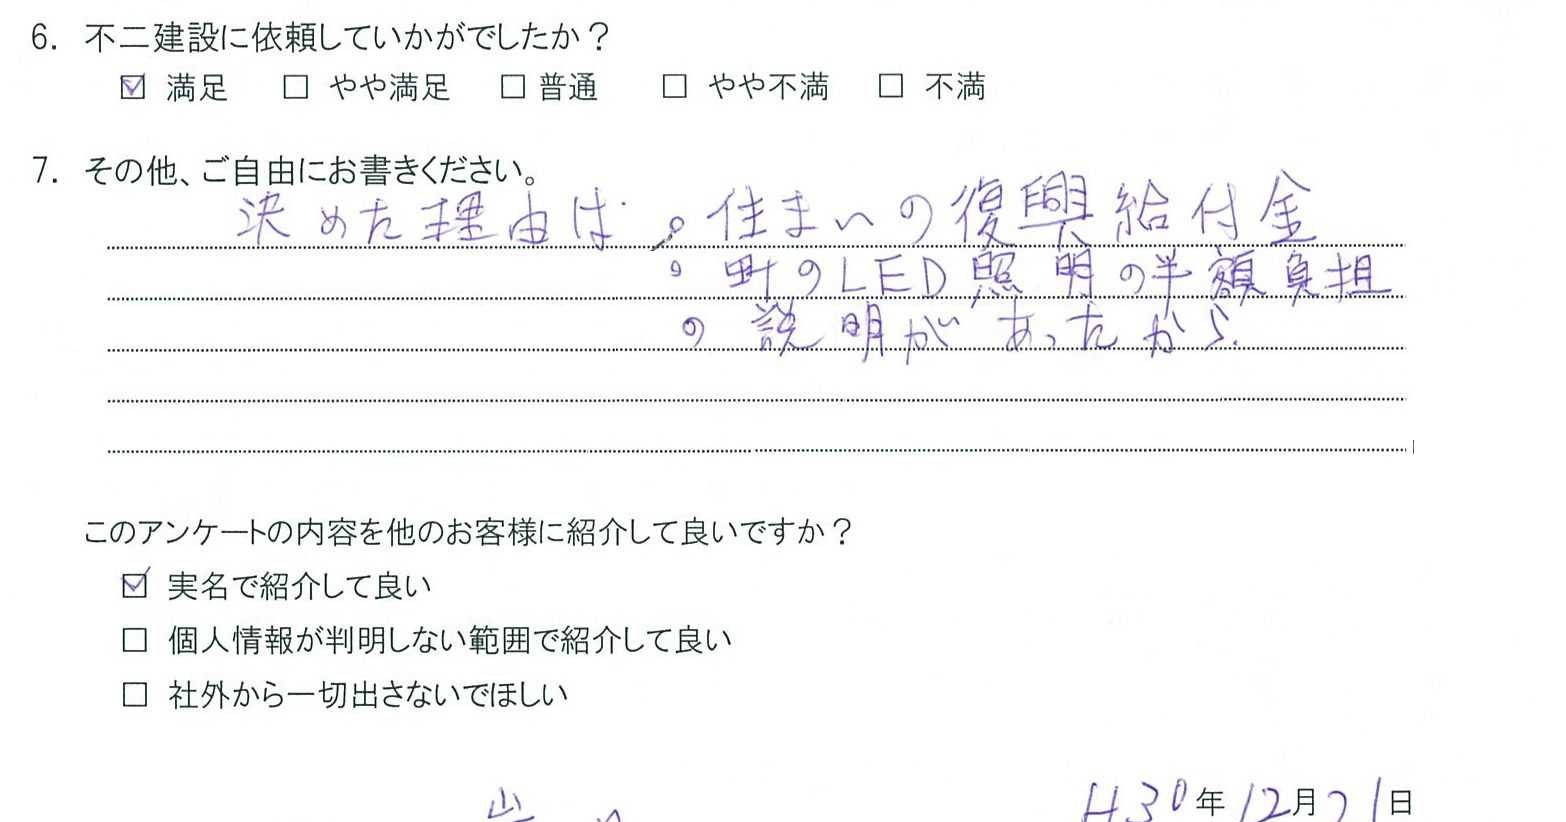 6. 不二建設に依頼していかがでしたか？
☑ 満足 □ やや満足 □ 普通 □ やや不満 □ 不満
7. その他、ご自由にお書きください。
決めた理由は、。住まいの復興給付金
。町のLED照明の半額負担
の説明があったから.
このアンケートの内容を他のお客様に紹介して良いですか？
☑ 実名で紹介して良い
□ 個人情報が判明しない範囲で紹介して良い
□ 社外から一切出さないでほしい
H30年12月21日